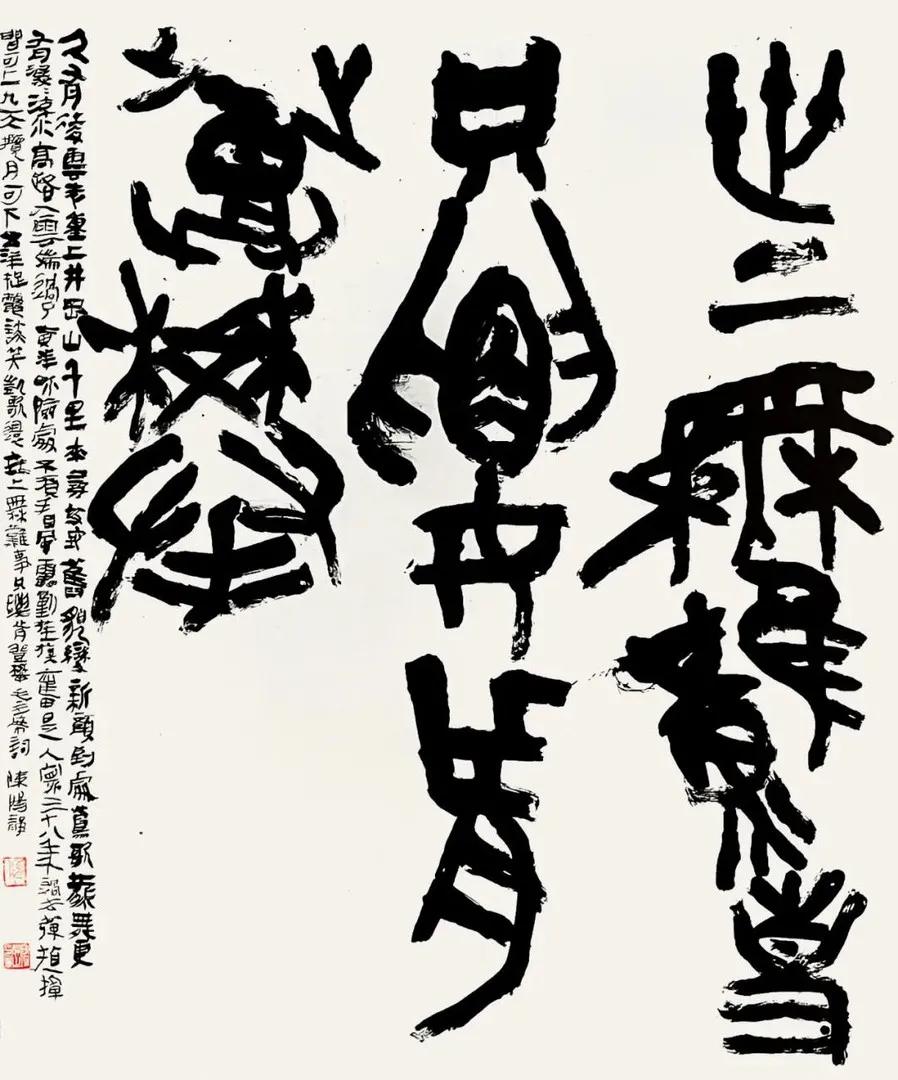 世上無難事
只要肯
登攀
久有凌雲志重上井岡山千里來尋故地舊貌變新顏到處鶯歌燕舞更
有潺潺流水高路入雲端過了黃洋界險處不須看風雷動旌旗奮是人寰三十八年過去彈指一揮
間可上九天攬月可下五洋捉鱉談笑凱歌還世上無難事只要肯登攀毛主席詞 陳陽靜